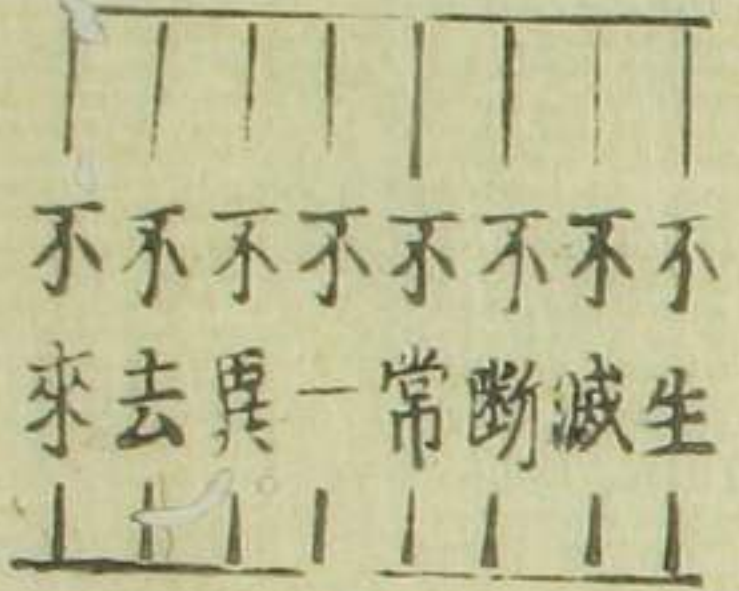 不生
不滅
不斷
不常
不一
不異
不去
不來